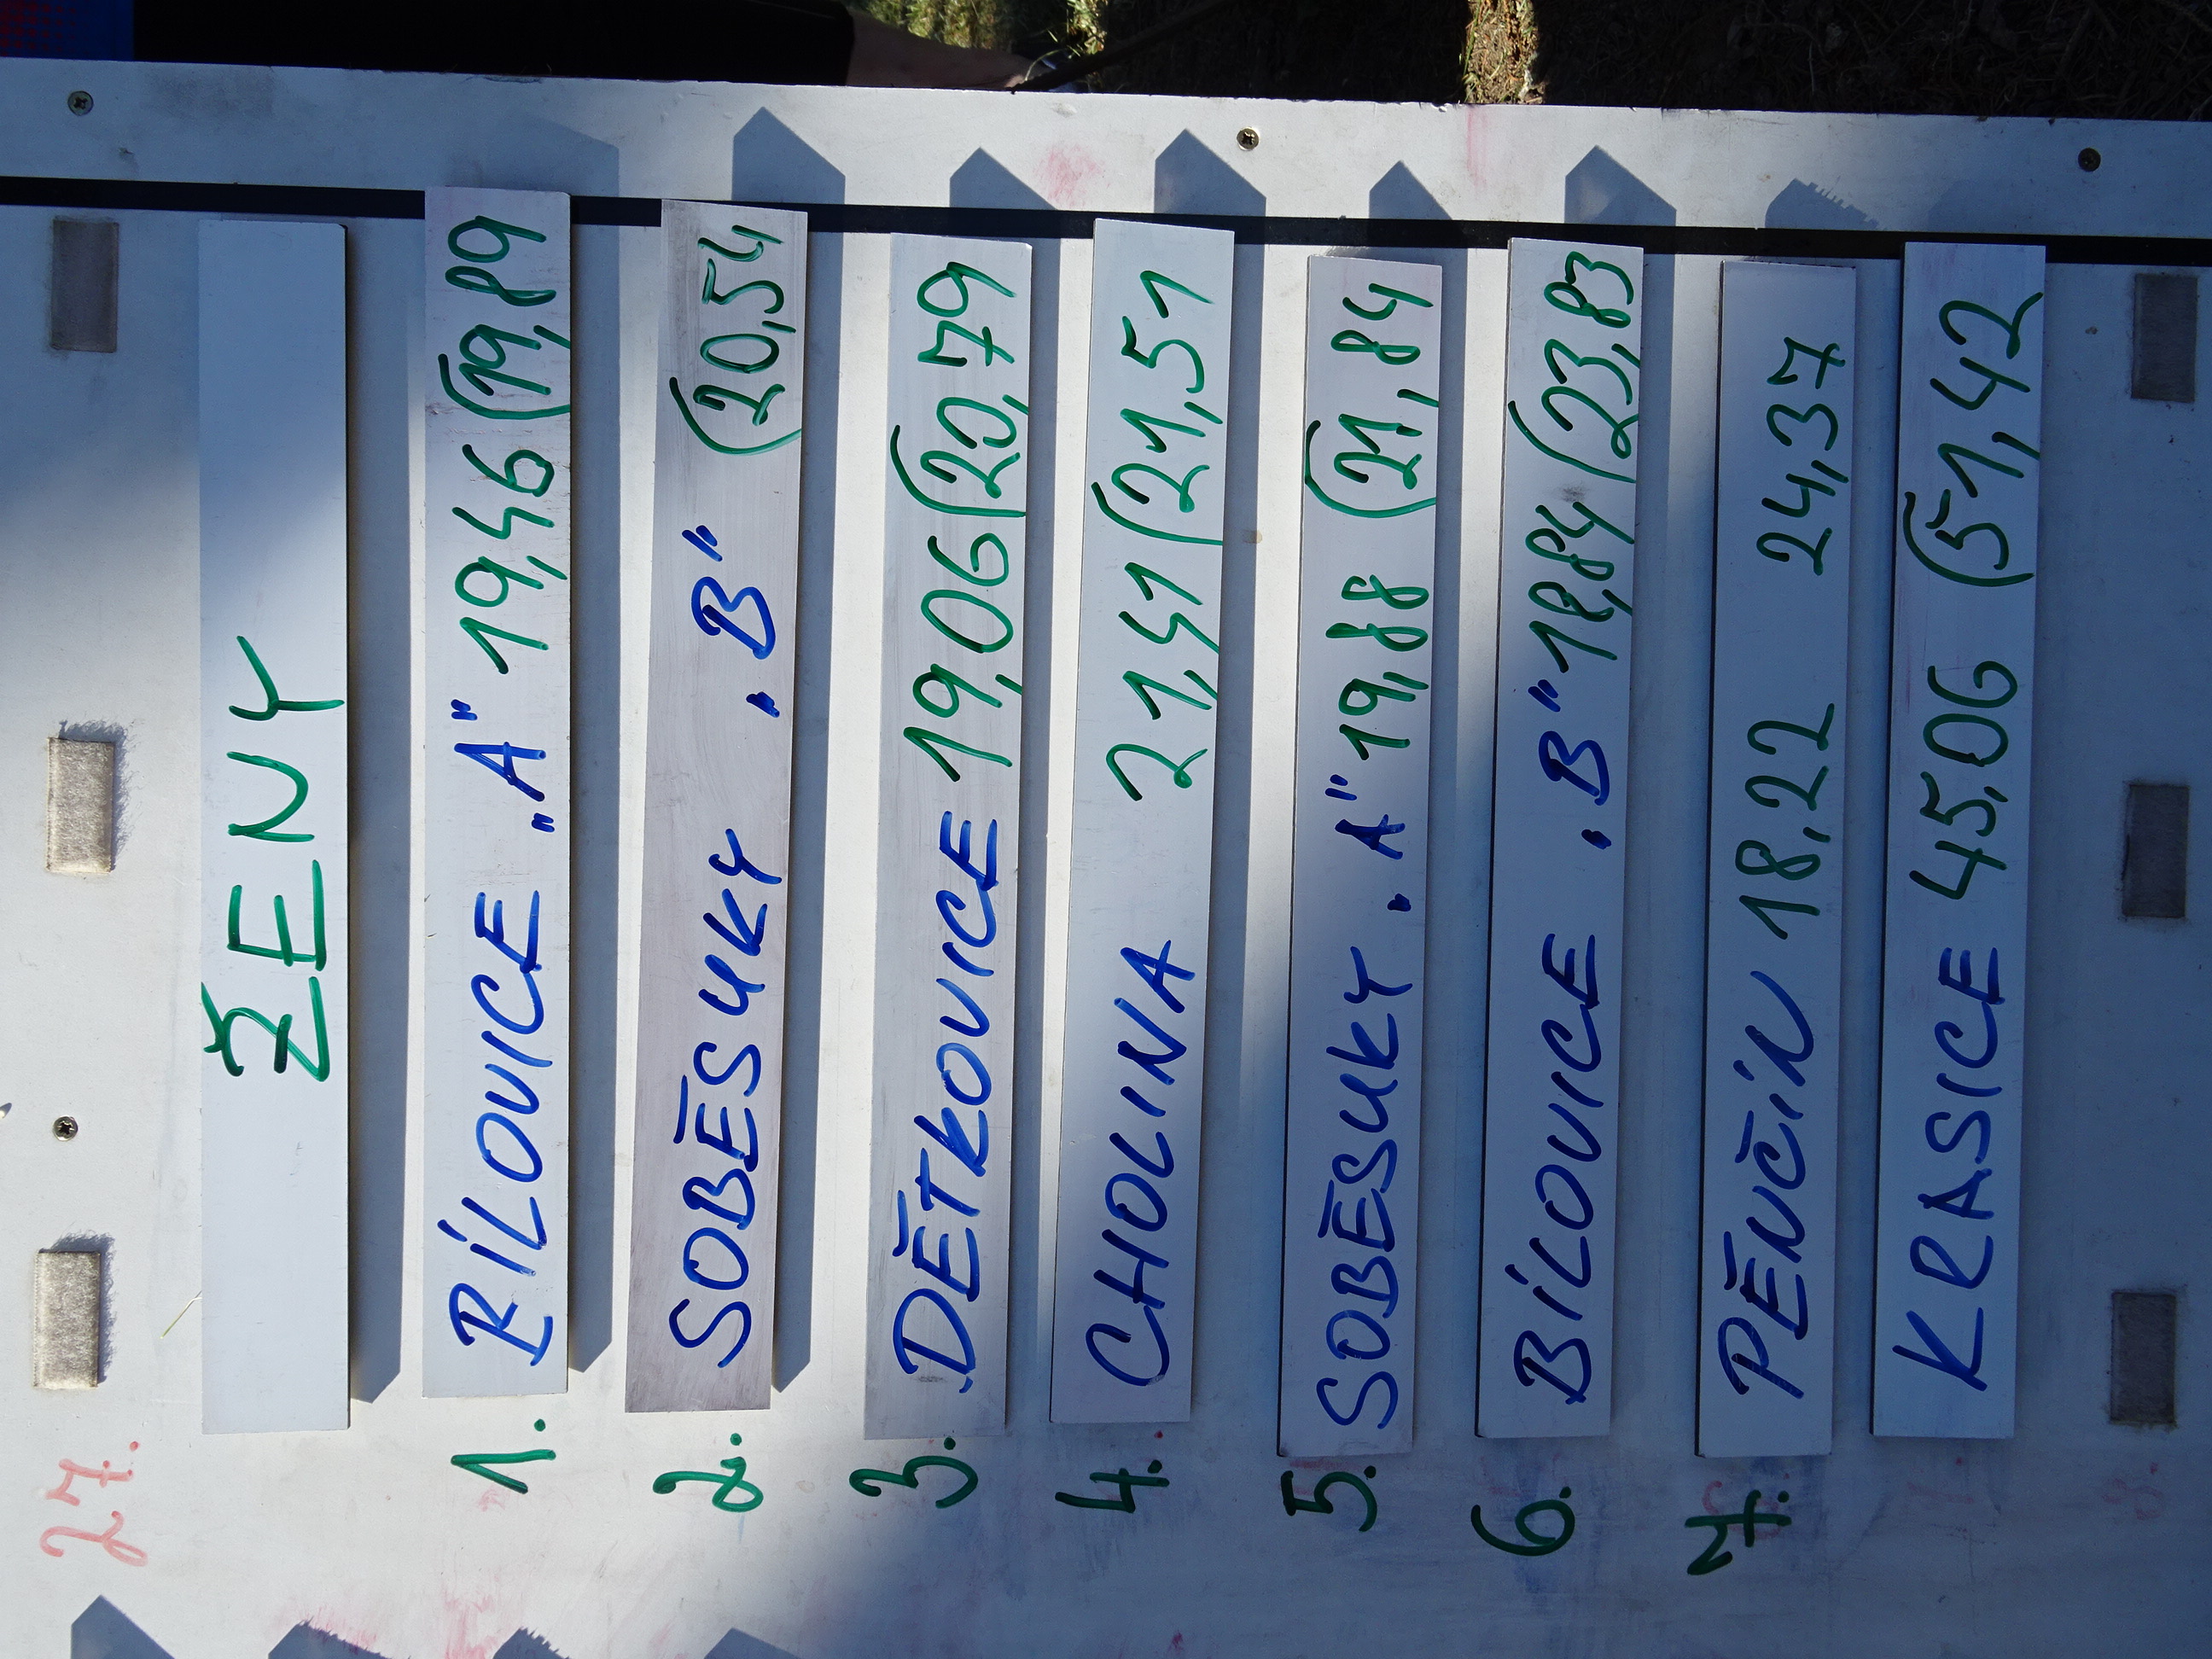 ŽENY
1. BÍLOVICE „A" 19,46 (19,89
2. SOBĚSUKY „B" (20,54
3. DĚTKOVICE 19,06 (20,79
4. CHOLINA 21,41 (21,51
5. SOBĚSUKY „A" 19,88 (21,84
6. BÍLOVICE „B" 18,84 (23,83
7. PĚNČÍN 18,22 24,37
KRASICE 45,06 (51,42